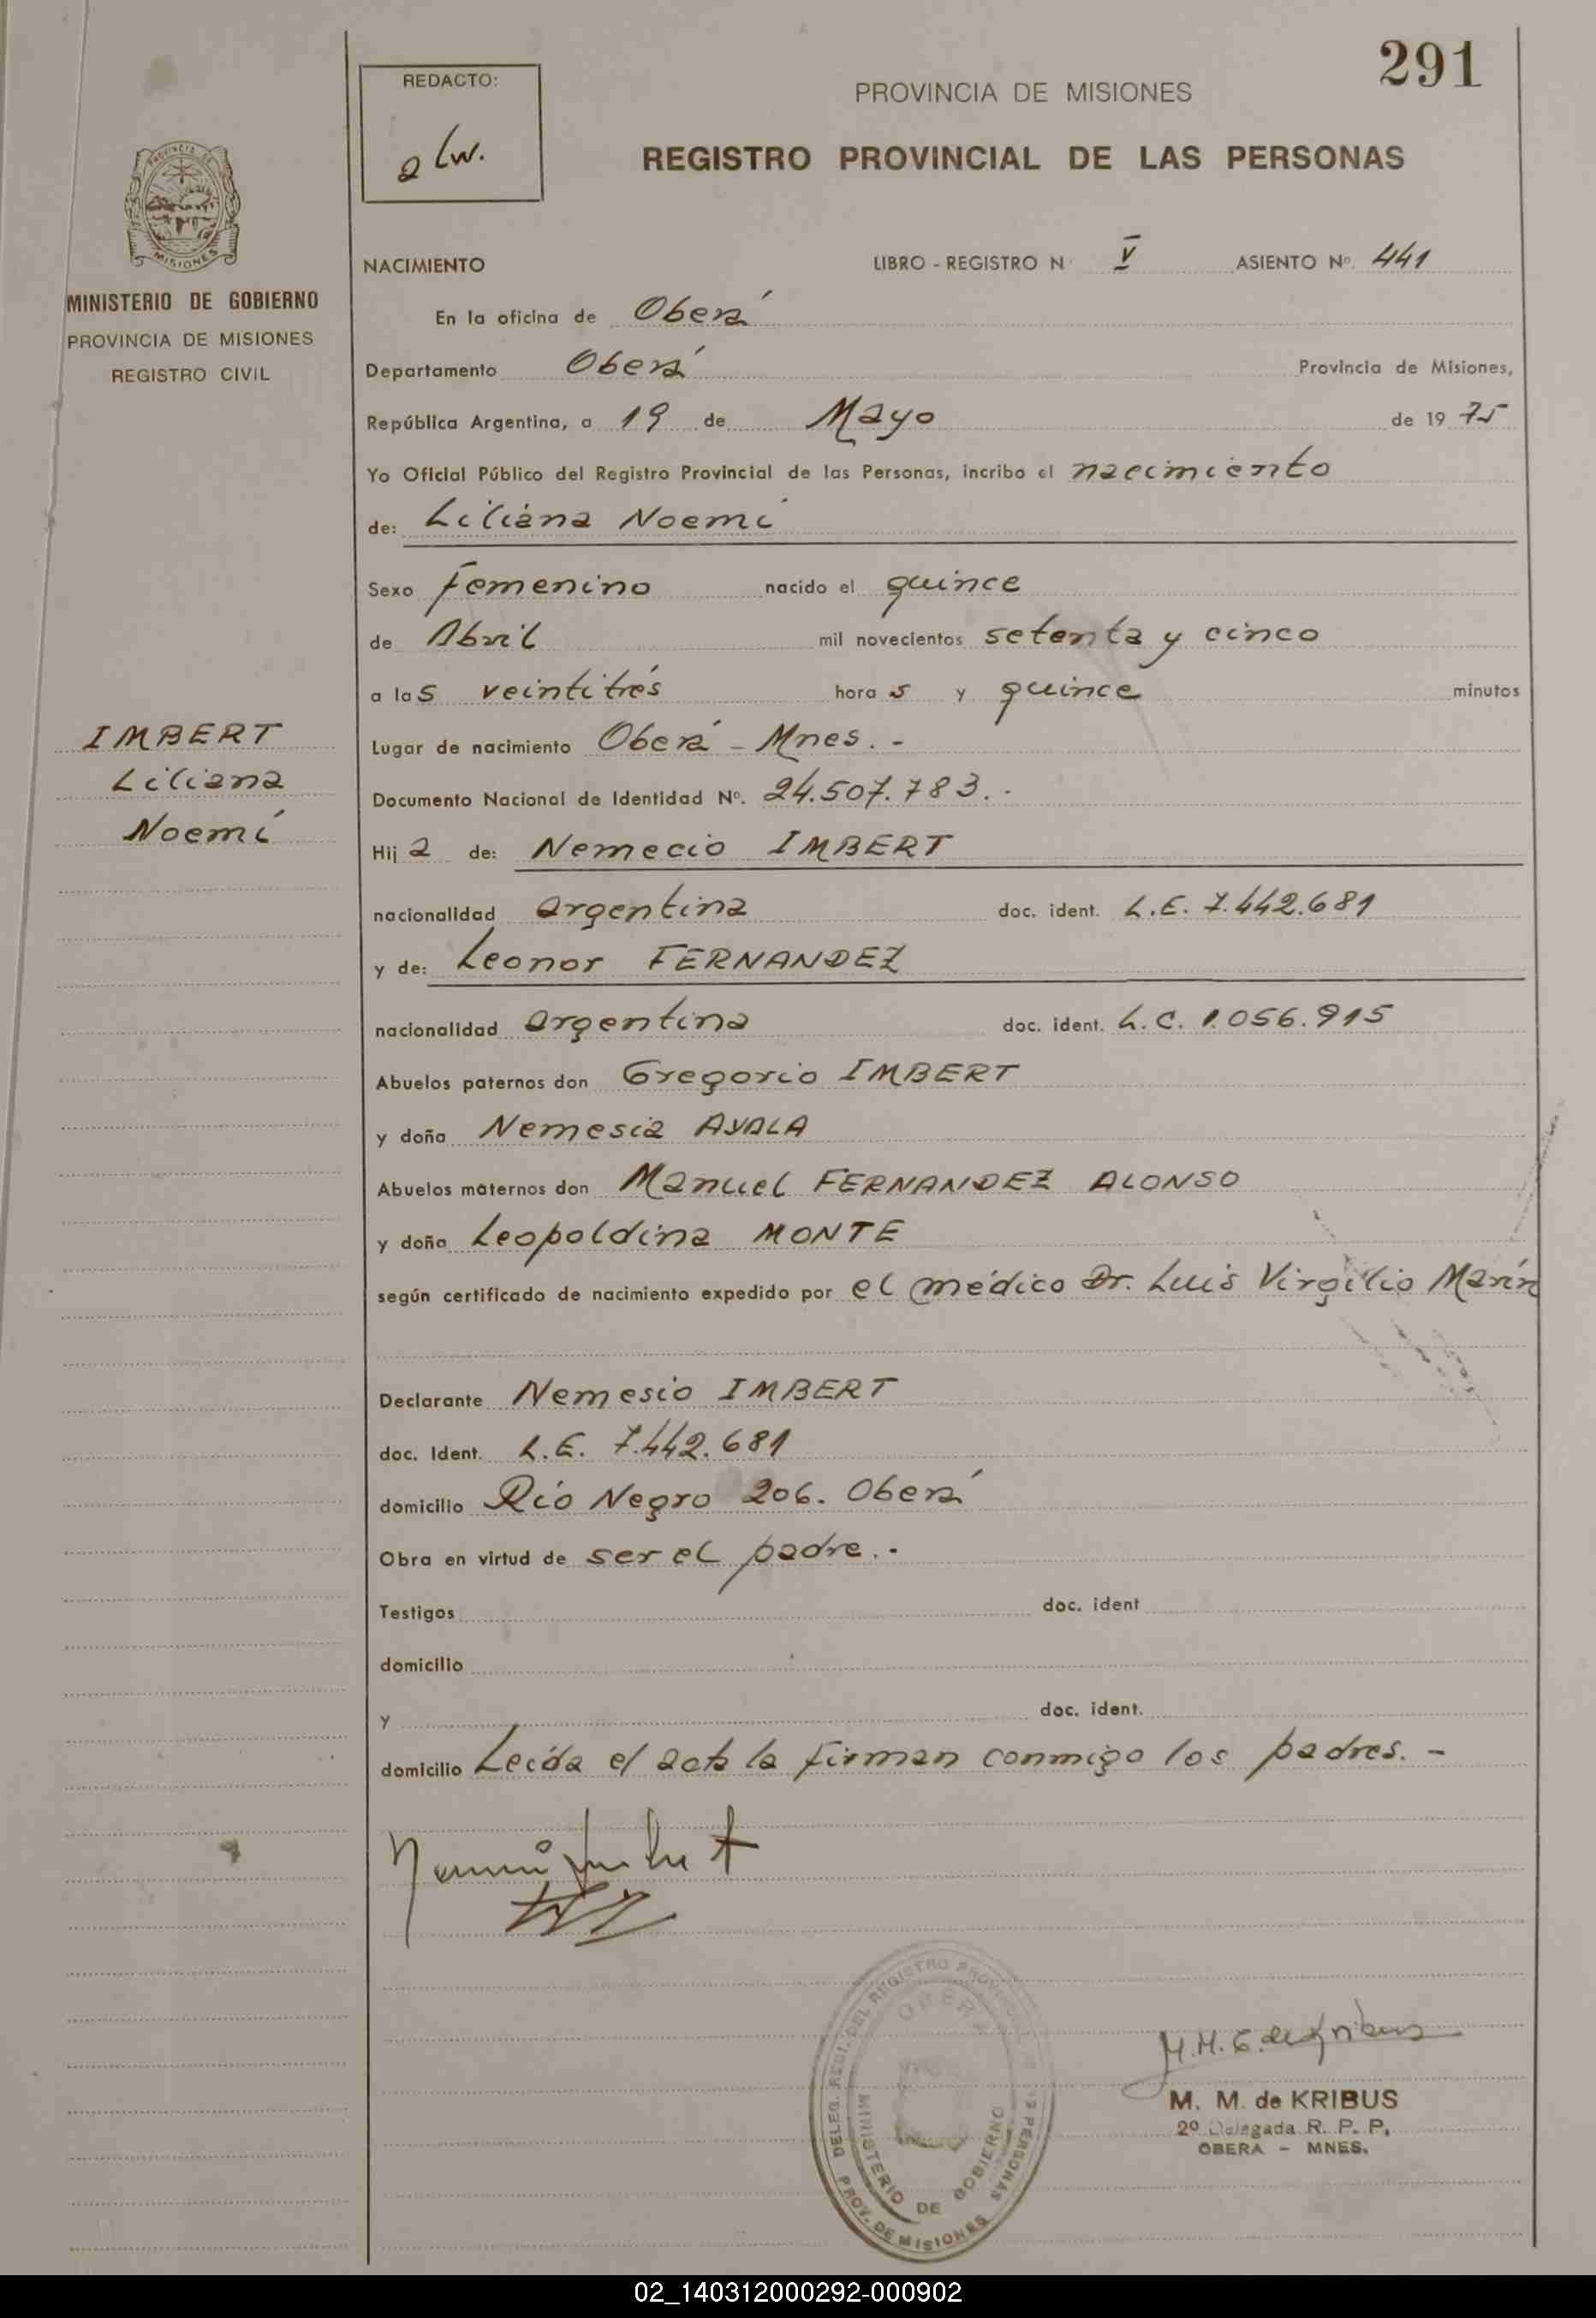 291
REDACTO:
PROVINCIA DE MISIONES
REGISTRO PROVINCIAL DE LAS PERSONAS
PROVINCIA DE
MISIONES
MINISTERIO DE GOBIERNO
PROVINCIA DE MISIONES
REGISTRO CIVIL
NACIMIENTO LIBRO - REGISTRO N V ASIENTO Nº. 441
En la oficina de Oberá
Departamento Oberá Provincia de Misiones,
República Argentina, a 19 de Mayo de 1975
Yo Oficial Público del Registro Provincial de las Personas, incribo el nacimiento
de: Liliana Noemí
Sexo femenino nacido el quince
de Abril mil novecientos setenta y cinco
a las veintitrés horas y quince minutos
Lugar de nacimiento Oberá - Mnes. -
Documento Nacional de Identidad Nº. 24.507.783. -
Hija de: Nemecio IMBERT
nacionalidad argentina doc. ident. L.E. 7.442.681
y de: Leonor FERNANDEZ
nacionalidad argentina doc. ident. L.C. 1.056.915
Abuelos paternos don Gregorio IMBERT
y doña Nemesia AYALA
Abuelos maternos don Manuel FERNANDEZ ALONSO
y doña Leopoldina MONTE
según certificado de nacimiento expedido por el médico Dr. Luis Virgilio Marín
Declarante Nemesio IMBERT
doc. Ident. L.E. 7.442.681
domicilio Río Negro 206. Oberá
Obra en virtud de ser el padre. -
Testigos doc. ident
domicilio
y doc. ident.
domicilio Leída el acta la firman conmigo los padres. -
IMBERT
Liliana
Noemí
DELEG. REGI. DEL REGISTRO PROV. PERSONAS
OBERA
MINISTERIO DE GOBIERNO
PROV. DE MISIONES
M. M. G. de Kribus
M. M. de KRIBUS
2º Delegada R. P. P.
OBERA - MNES.
02_140312000292-000902